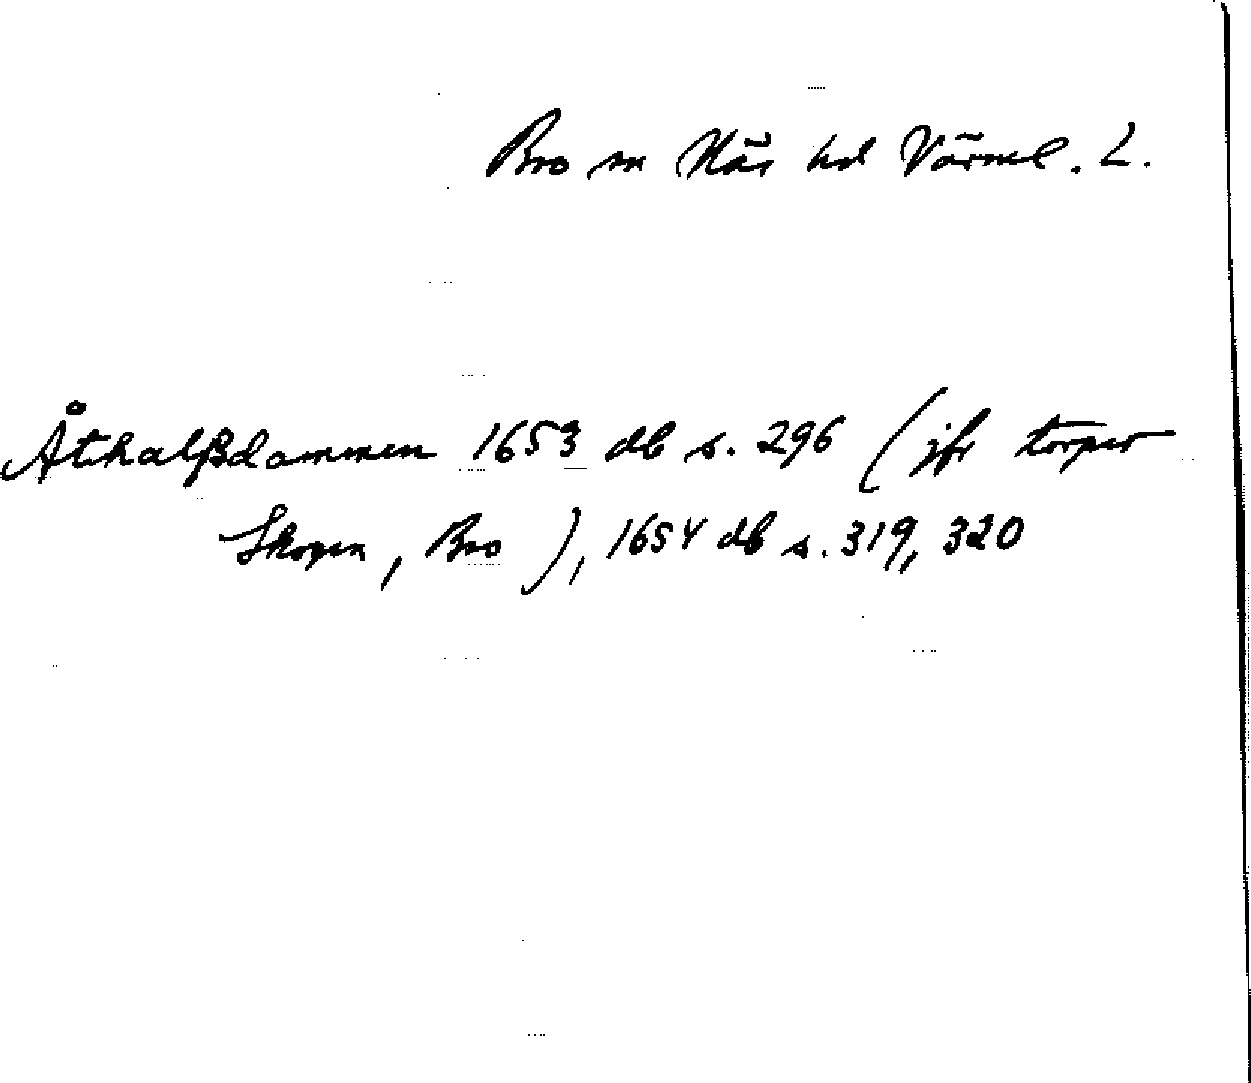 Bro sn Näs hd Värml. L.
Åthalßdammen 1653 db s. 296 (jfr torpen
Skogen, Bro), 1654 db s. 319, 320